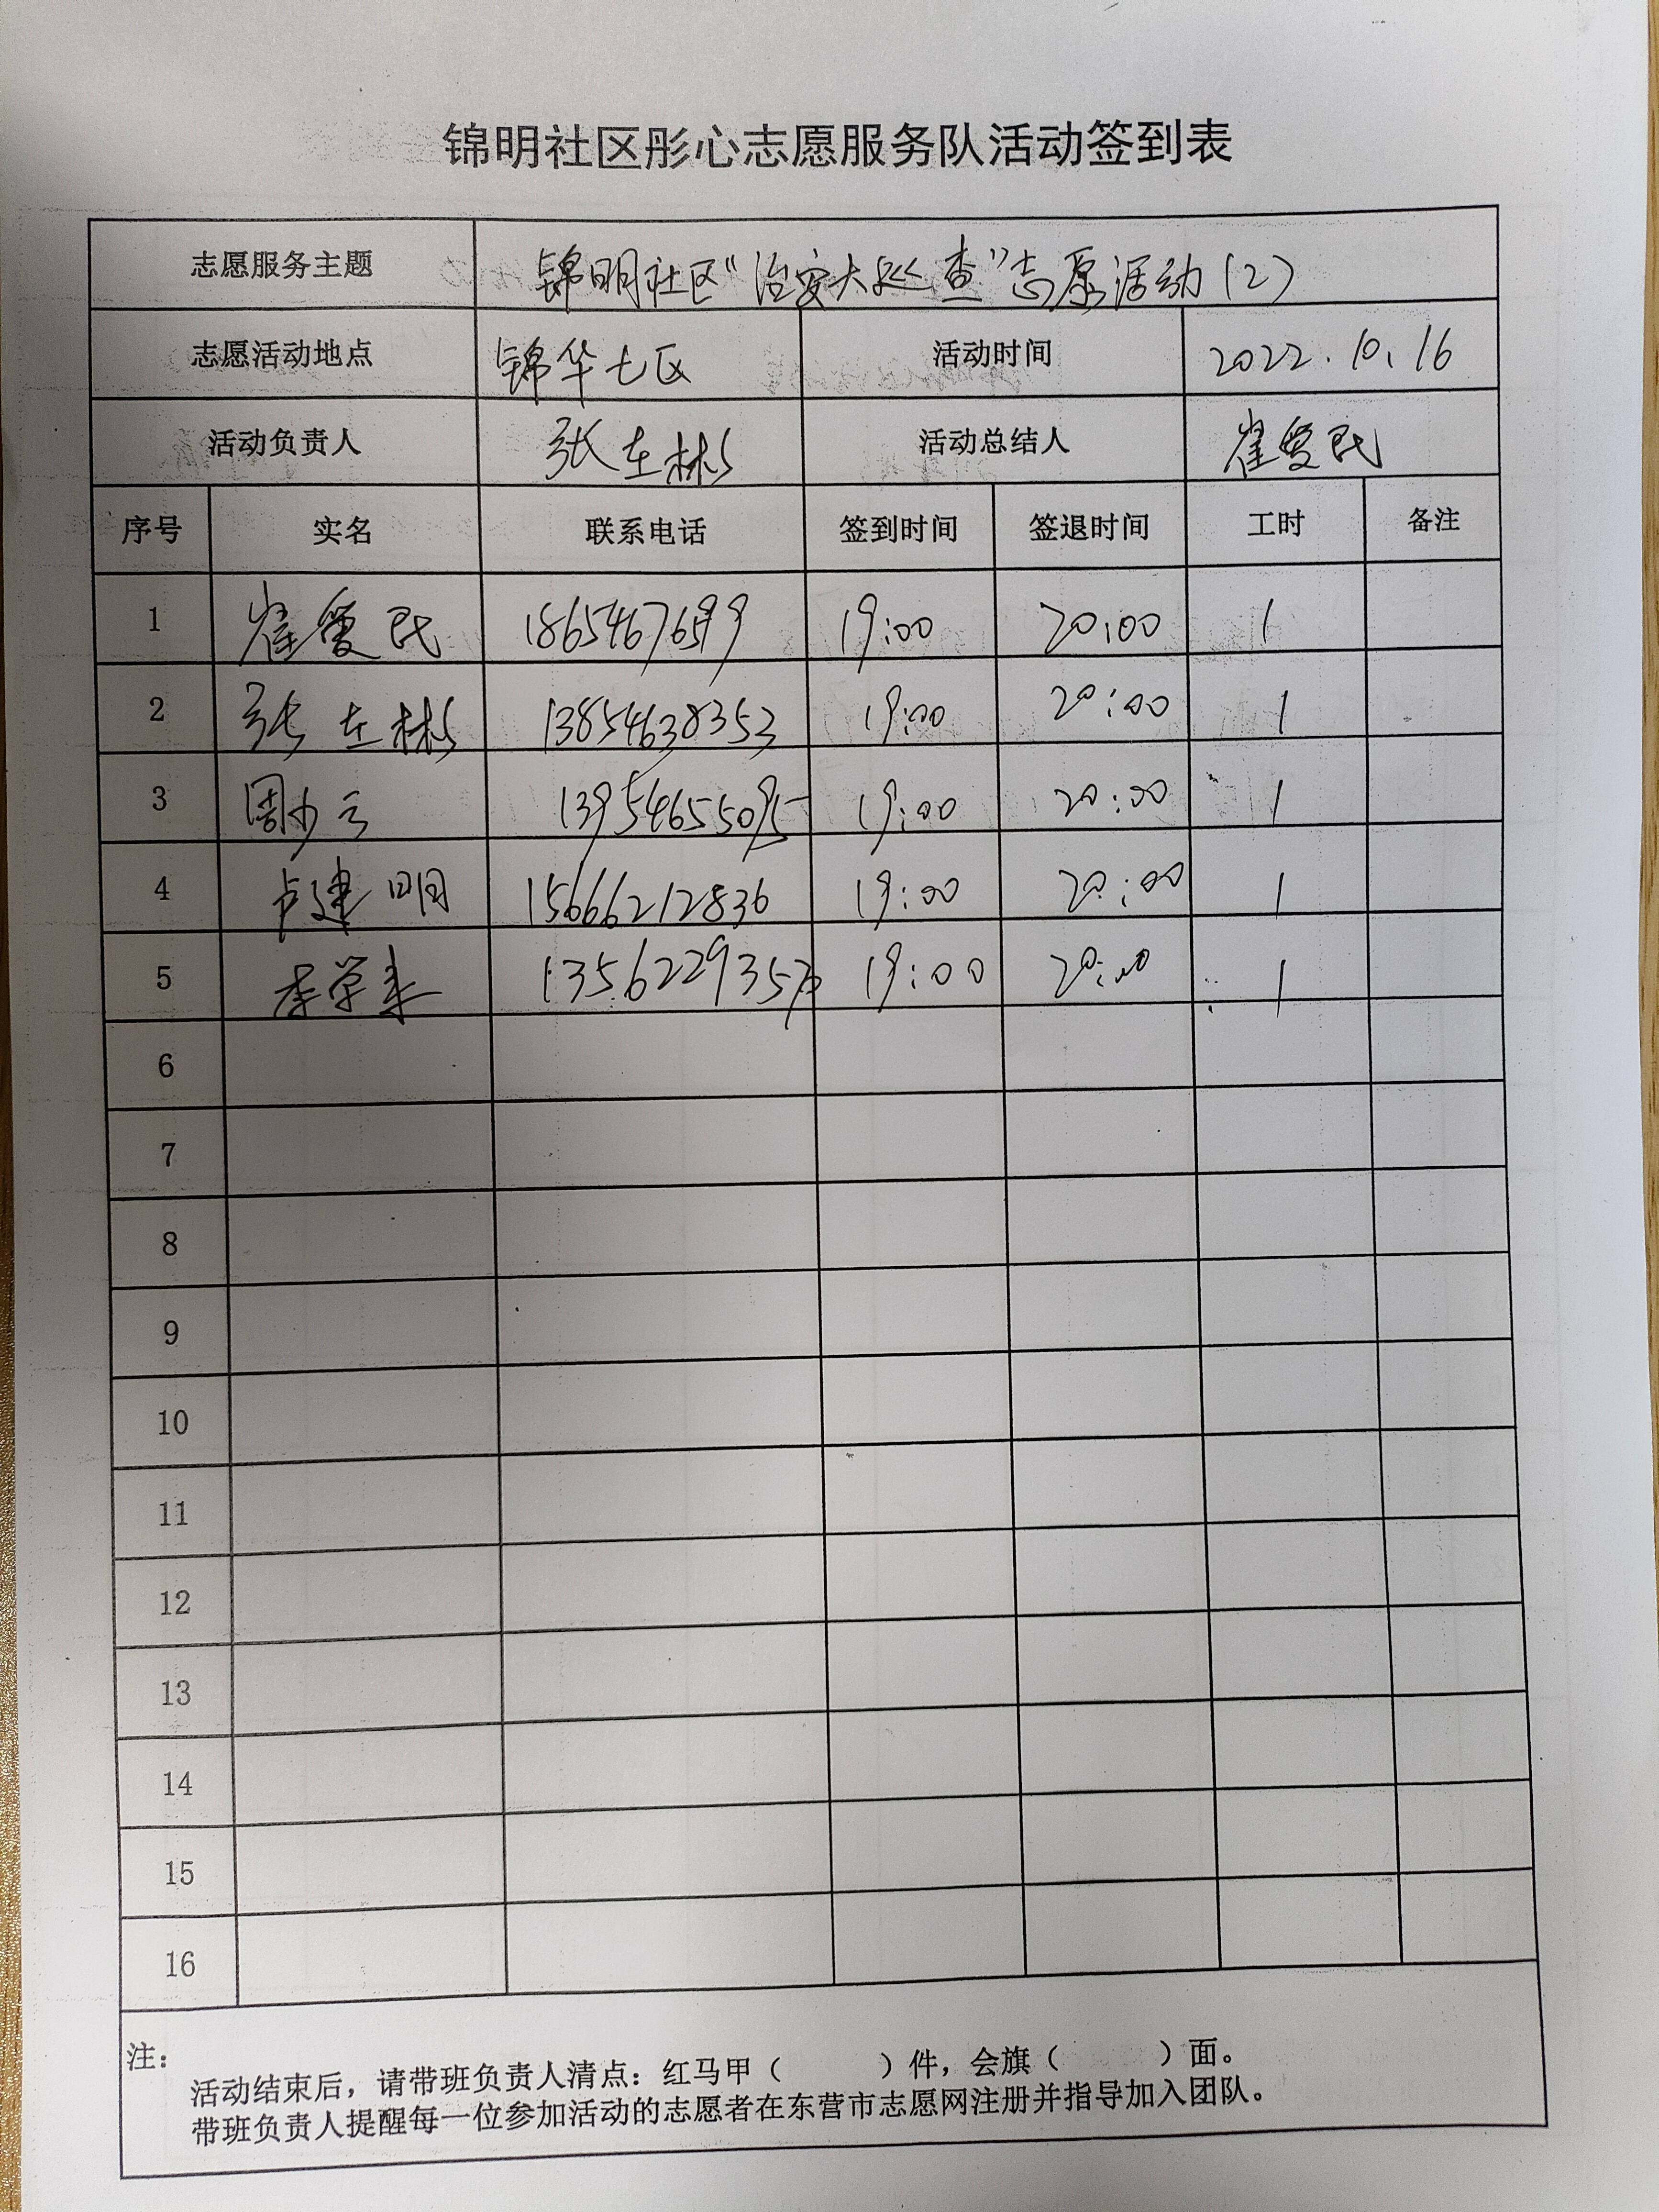 锦明社区彤心志愿服务队活动签到表
志愿服务主题 锦明社区“治安大巡查”志愿活动(2)
志愿活动地点 锦华七区 活动时间 2022.10.16
活动负责人 张左彬 活动总结人 崔爱民
序号 实名 联系电话 签到时间 签退时间 工时 备注
1 崔爱民 19:00 20:00 1
2 张左彬 13854638353 19:00 20:00 1
3 周少云 13954655095 19:00 20:00 1
4 卢建明 15666212836 19:00 20:00 1
5 李学来 19:00 20:00 1
6
7
8
9
10
11
12
13
14
15
16
注:
活动结束后，请带班负责人清点：红马甲（ ）件，会旗（ ）面。
带班负责人提醒每一位参加活动的志愿者在东营市志愿网注册并指导加入团队。